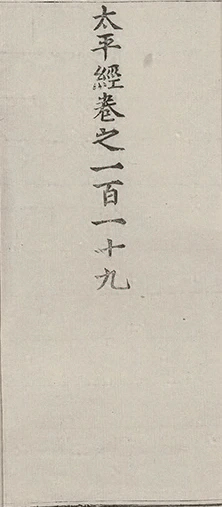 太平經卷之一百一十九